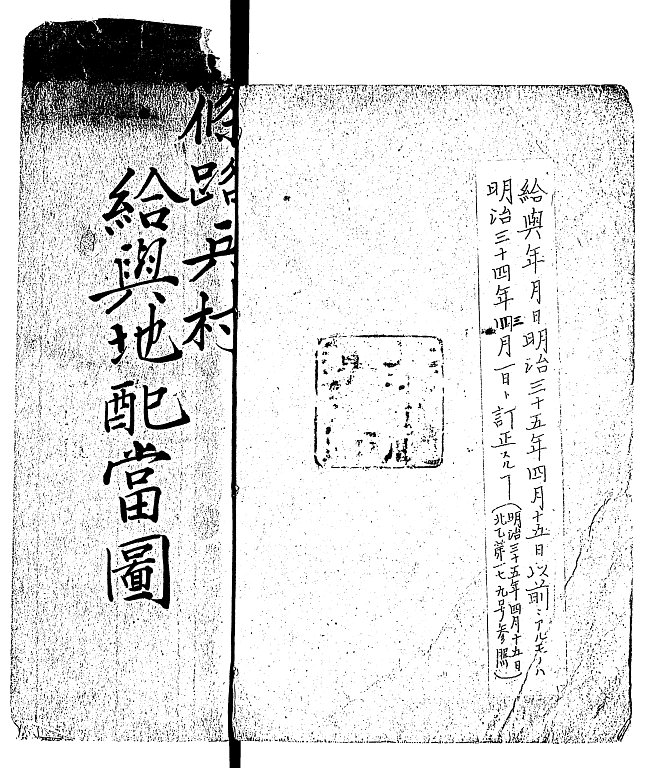 給與年月日明治三十五年四月十五日以前ニアルモノハ
明治三十四年三月一日ト訂正スルヿ
(明治三十五年四月十五日
北乙第一七九号参照)
條路兵村
給與地配當圖